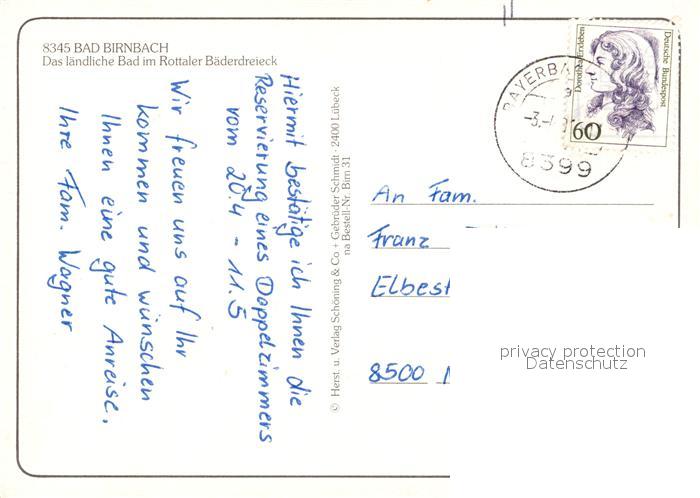 8345 BAD BIRNBACH
Das ländliche Bad im Rottaler Bäderdreieck
Hiermit bestätige ich Ihnen die
Reservierung eines Doppelzimmers
vom 20.4 - 11.5
Wir freuen uns auf Ihr
kommen und wünschen
Ihnen eine gute Anreise.
Ihre Fam. Wagner
© Herst. u. Verlag Schöning & Co + Gebrüder Schmidt · 2400 Lübeck
na Bestell-Nr. Birn 31
Dorothea Erxleben
Deutsche Bundespost
60
8399
An Fam.
Franz
Elbest
8500
privacy protection
Datenschutz